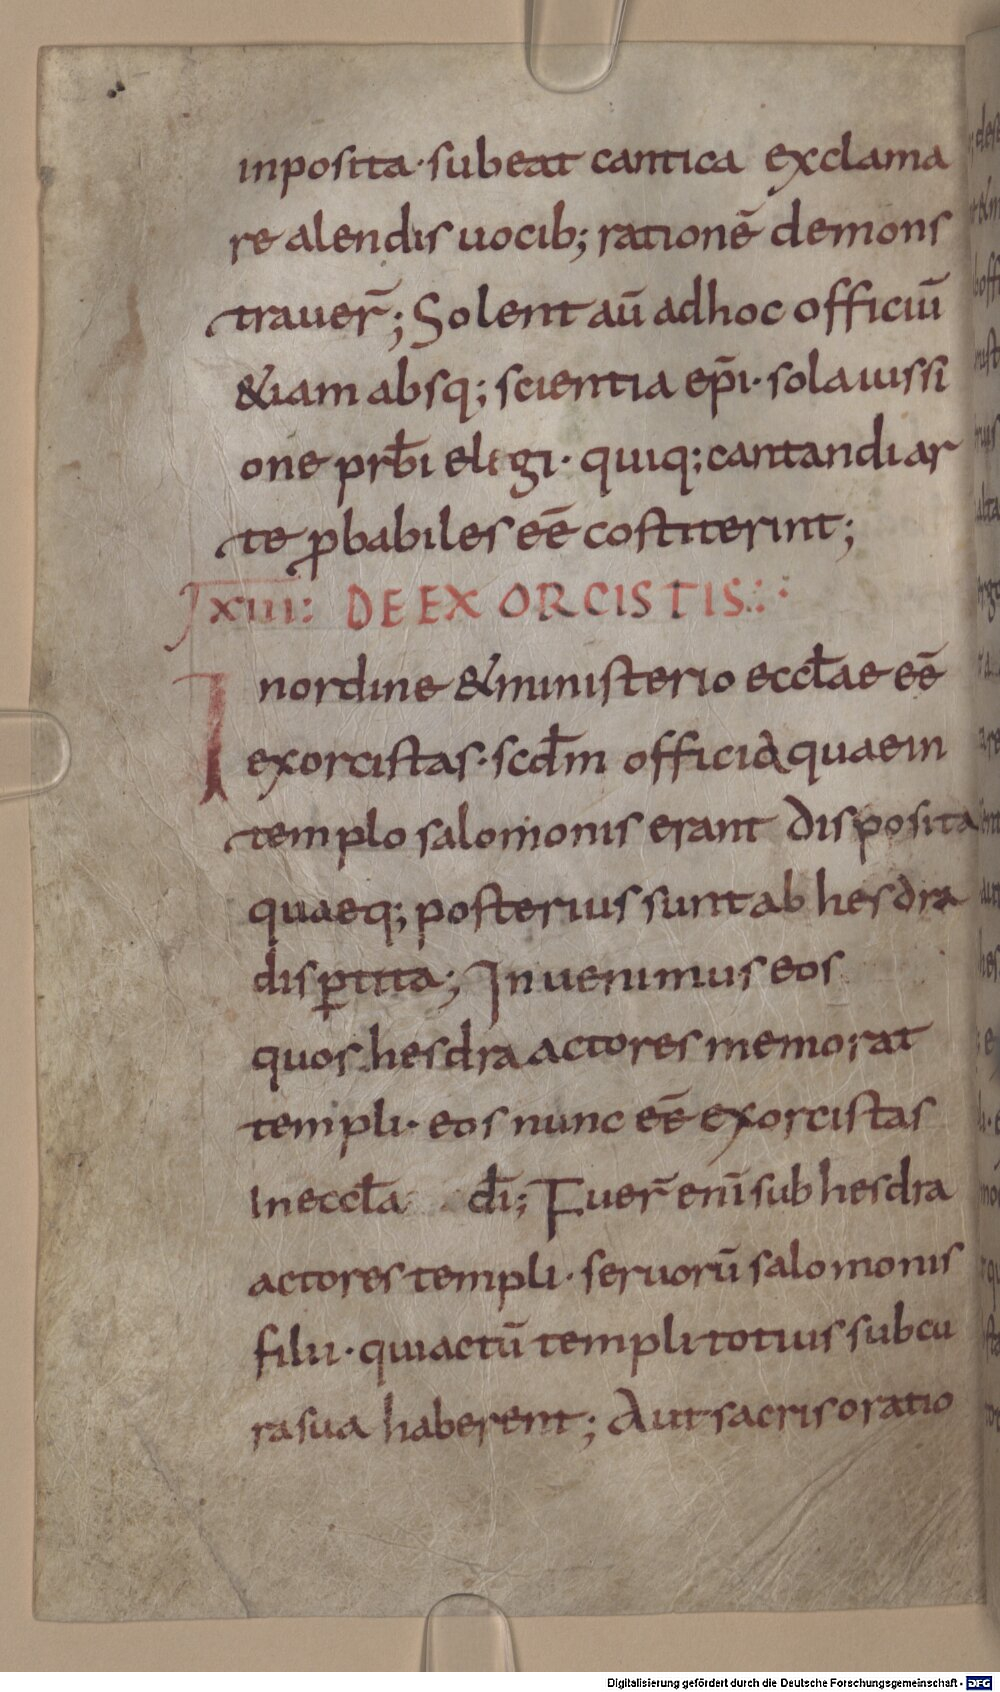 inposita · subeat cantica exclama
re alendis uocib; rationē demons
trauer̄; Solent aū adhoc officiū
&iam absq; scientia ep̄i · sola iussi
one prƀi elegi · quiq; cantandi ar
te ꝓbabiles eē costiterint;
XIII: DE EXORCISTIS:·:·
In ordine & ministerio eccłae eē
exorcistas · scđm officia quae in
templo salomonis erant disposita
quaeq; posterius sunt ab hesdra
disꝑtita; Inuenimus eos
quos hesdra actores memorat
templi · eos nunc eē exorcistas
In eccła đi; Fuer̄ eni̅ sub hesdra
actores templi · seruorū salomonis
filii · qui actū templi totius sub cu
ra sua haberent; Aut sacris oratio
Digitalisierung gefördert durch die Deutsche Forschungsgemeinschaft - DFG